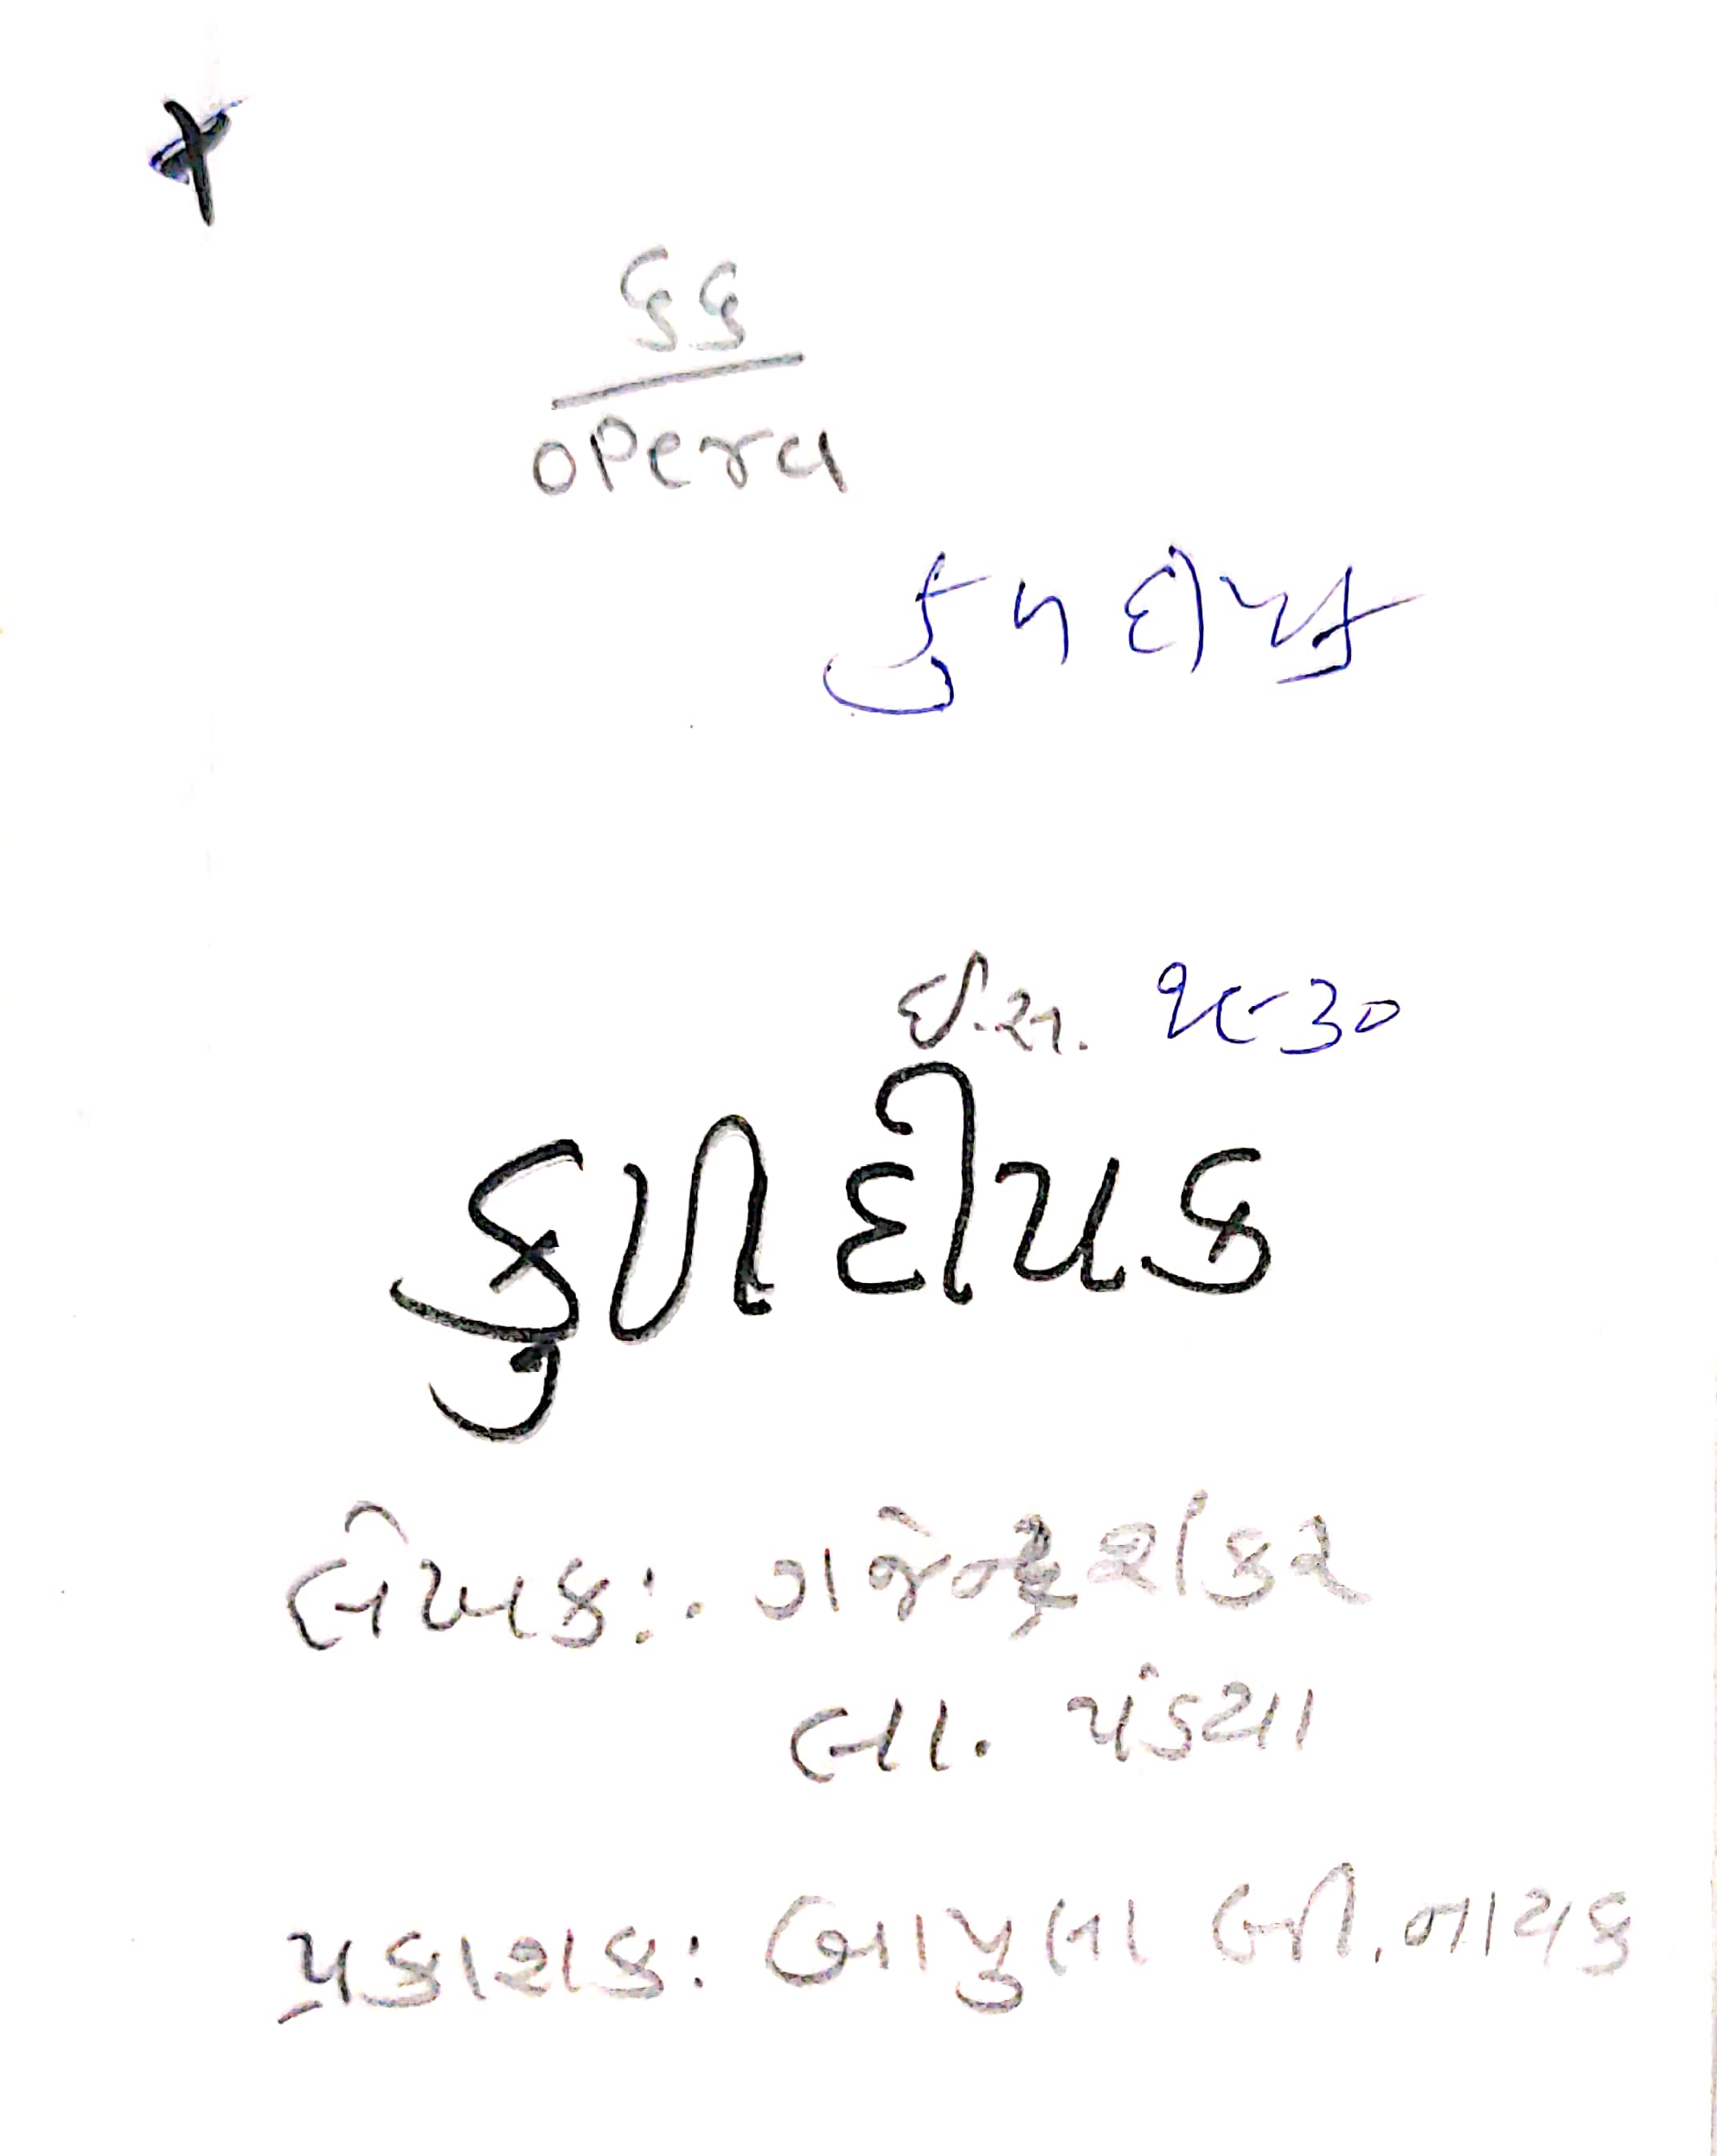 ૬૬
opera
કુળદીપક
ઈ.સ. ૧૯૩૦
કુળદીપક
લેખક:. ગજેન્દ્રશંકર
લા. પંડયા
પ્રકાશક: બાપુલા બી. નાયક